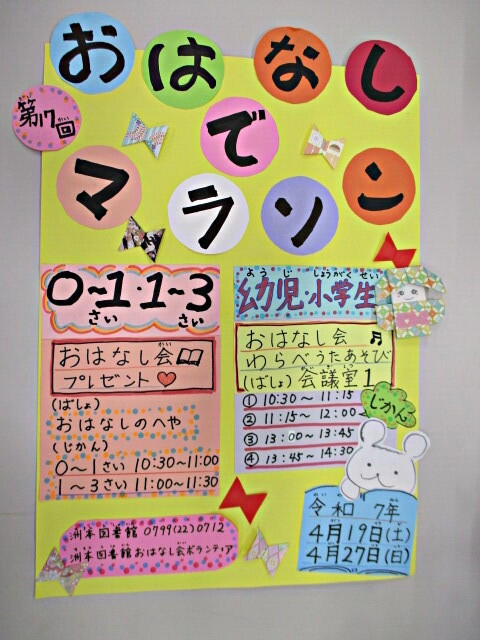 第17回
だい かい
おはなし
で
マラソン
0~1・1~3
さい さい
おはなし会
かい
プレゼント
(ばしょ)
おはなしのへや
(じかん)
0~1さい 10:30~11:00
1~3さい 11:00~11:30
ようじ しょうがくせい
幼児・小学生
おはなし会
かい
わらべうたあそび
(ばしょ)会議室1
かいぎしつ
じかん
① 10:30~11:15
② 11:15~12:00
③ 13:00~13:45
④ 13:45~14:30
洲本図書館 0799(22)0712
洲本図書館おはなし会ボランティア
れいわ ねん
令和 7年
4月19日(土)
4月27日(日)